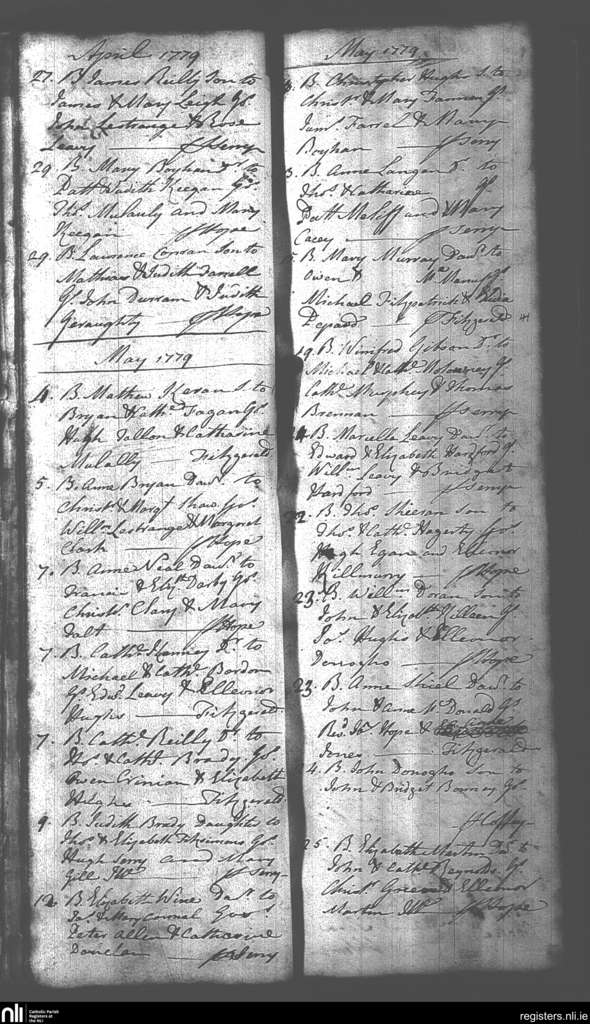 April 1779
27. B. James Reilly Son to
James & Mary Leigh Gs.
John Lestrange & Rose
Leavy — Serry
29. B. Mary Boyhan Dr. to
Patt & Judith Keegan Gs.
Thos. McCauly and Mary
Keegan — Hope
29. B. Laurence Conran Son to
Mathias & Judith Farrell
Gs. John Durram & Judith
Geraughty — Hope
May 1779
4. B. Mathew Keran S. to
Bryan & Cathe. Fagan Gs.
Hugh Tallon & Catharine
Mulally — Fitzgerald
5. B. Anne Bryan Daur. to
Christr. & Margt. Shaw Gs.
Willm. Lestrange & Margret
Clark — Hope
7. B. Anne Neal Daur. to
Francis & Elizth. Darby Gs.
Christr. Clary & Mary
Dalt — Hope
7. B. Cathe. Kenney Dr. to
Michael & Cathe. Bordon
Gs. Edwd. Leavy & Ellenor
Hughes — Fitzgerald
7. B. Cathe. Reilly Dr. to
Thos. & Cathe. Brady Gs.
Owen Crinian & Elizabeth
Hughes — Fitzgerald
9. B. Judith Brady Daughter to
Thos. & Elizabeth Fitzsimons Gs.
Hugh Serry and Mary
Gill — Serry
12. B. Elizabeth Wine Daur. to
Jas. & Mary Cormal Gs.
Peter Allen & Catharine
Donelan — Serry
May 1779
B. Christopher Hughs S. to
Christr. & Mary Farmer Gs.
Jams. Farrel & Mary
Boyhan — Serry
B. Anne Langan D. to
Thos. & Catharine Gs.
Patt and Mary
Casey — Serry
B. Mary Murray Daur. to
Owen & Gs.
Michael Fitzpatrick &
Fitzgerald
19. B. Winifred D. to
Michael & Cathe. Gs.
Cathe. Murphey & Thomas
Brennan — Serry
B. Marcella Leavy Daur. to
Edward & Elizabeth Harford Gs.
Willm. Leavy & Bridget
Harford — Serry
22. B. Thos. Sheeran Son to
Thos. & Cathe. Hagerty Gs.
Hugh Egan and Elleonor
Killmurry — Hope
23. B. Willm. Doran Son to
John & Elizabth. Killeen Gs.
Jos. Hughs & Elleonor
Donogho — Hope
23. B. Anne Shiel Daur. to
John & Anne McDonald Gs.
Revd. Hope &
Jones — Fitzgerald
24. B. John Donogho Son to
John & Bridget Gs.
25. B. Elizabeth Martin Dr. to
John & Cathe. Reynolds Gs.
Christr. & Elleonor
Martin — Hope
nli
Catholic Parish
Registers at
the NLI
registers.nli.ie